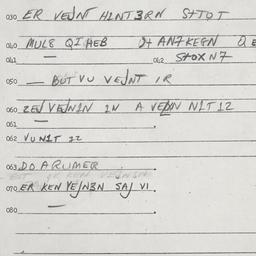 030 ER VEJNT H1NT3RN S++TOT
040 MUL8 QI AEB J+ AN7KEEN Q E
041 042 S+OXN7
050 BUT VU VEJNT 1R
060 ZEJ VEJN1N 1N A VEJN N1T12
061
062 VUN1T 22
063 DO A RUMER
070 ER KEN VEJN3N SAJ VI
080